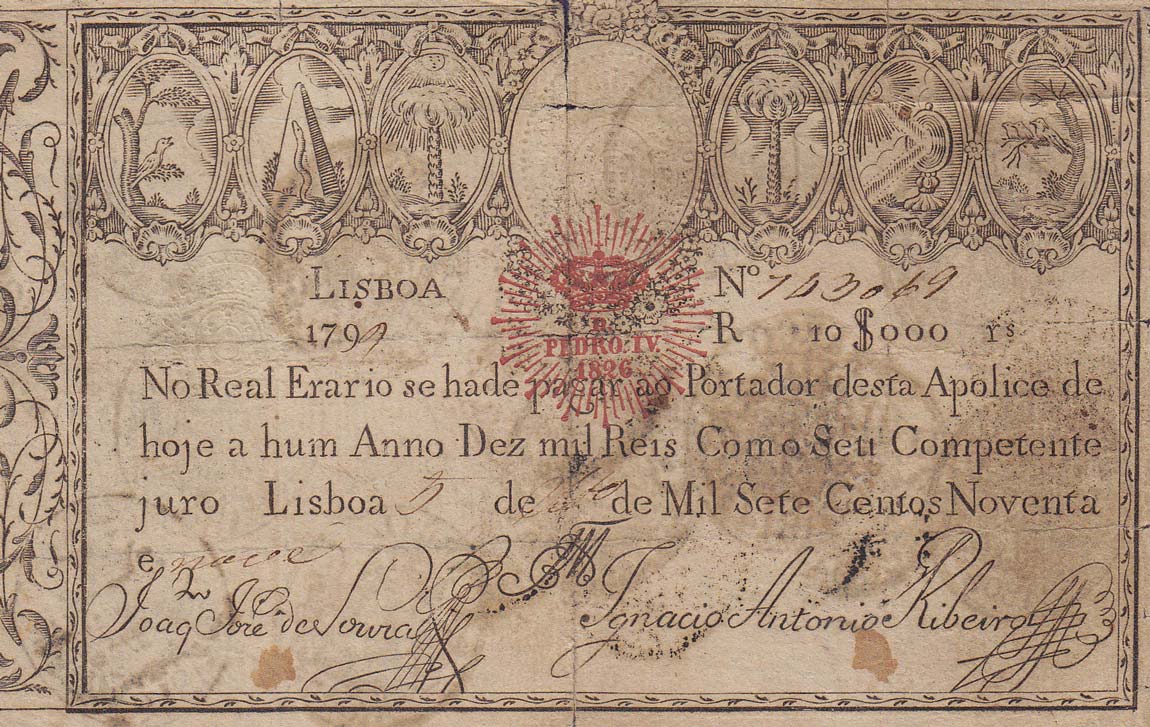 LISBOA
Nº 743069
1799
R 10$000 rs
P.
PEDRO. IV.
1826
No Real Erario se hade pagar ao Portador desta Apolice de
hoje a hum Anno Dez mil Reis Como Seu Competente
juro Lisboa 5 de de Mil Sete Centos Noventa
e nove
Joaq Jozé de Souza
Ignacio António Ribeiro